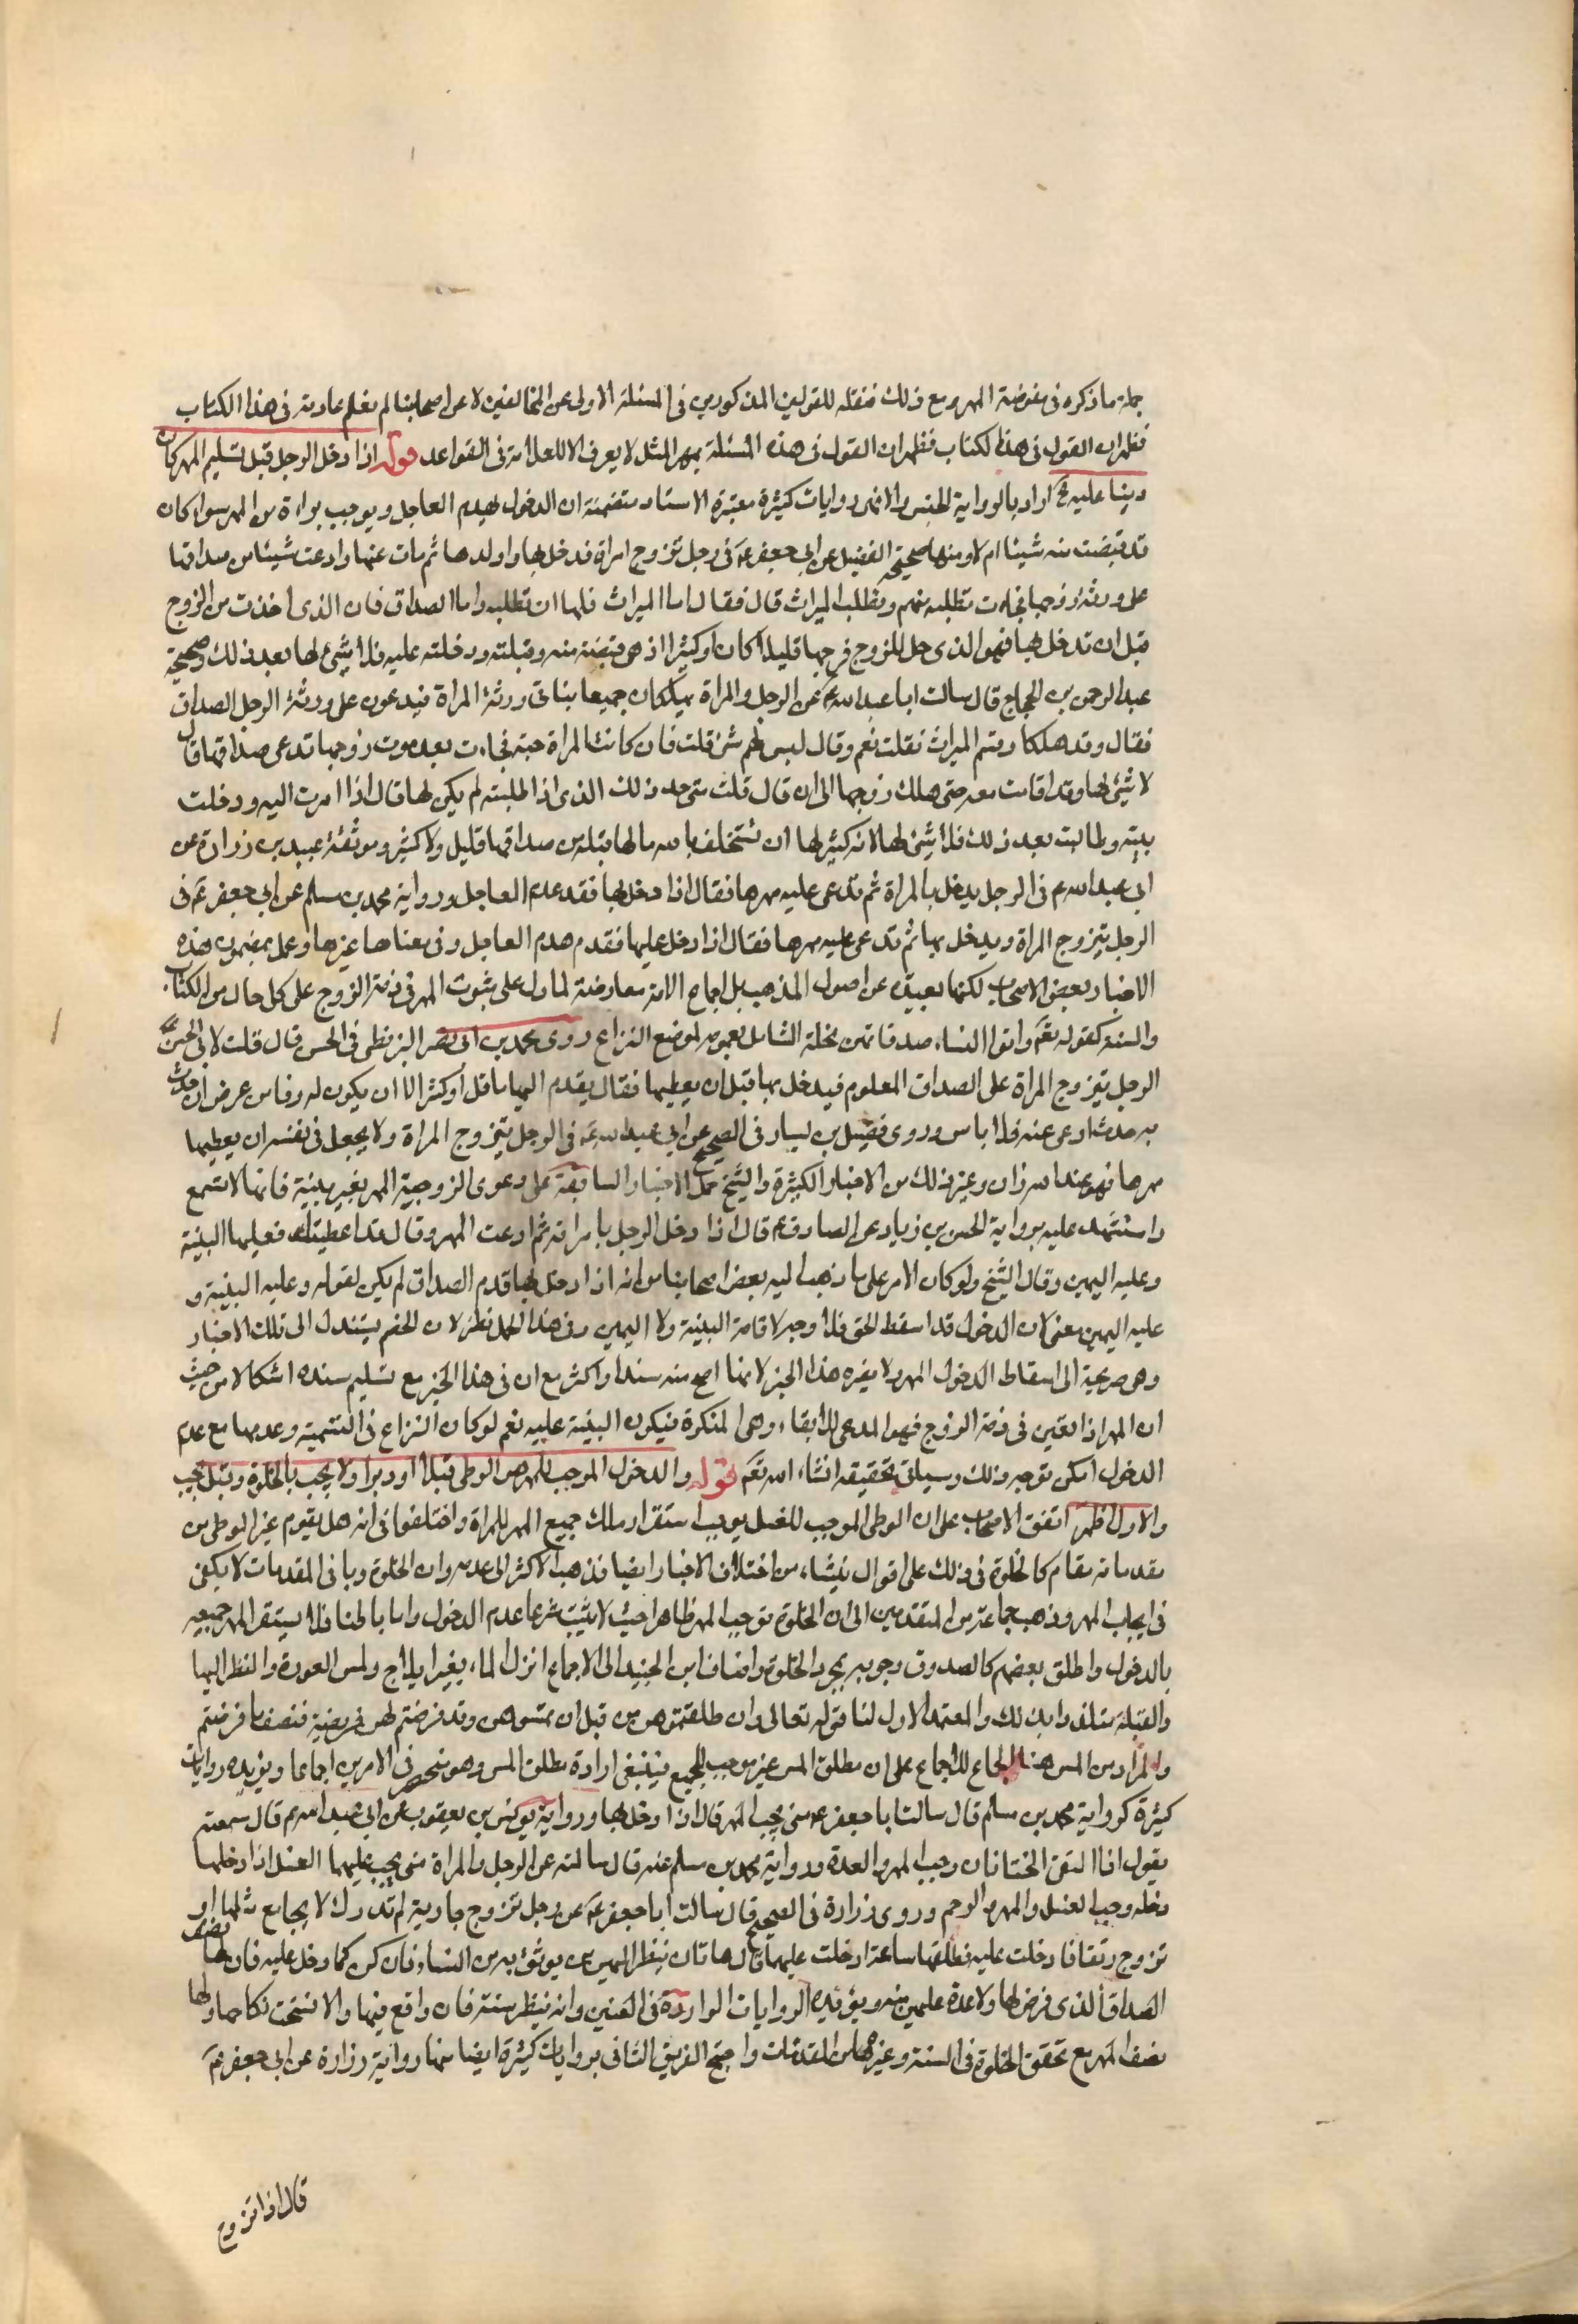 جملة ما ذكره في مفوضة المهر ومع ذلك فنقله للقولين المذكورين في المسئلة الاولى عن المخالفين لا عن اصحابنا لم يعلم عادته في هذا الكتاب
فظهر ان القول في هذا الكتاب فظهر ان القول في هذه المسئلة بمهر المثل لا يعرف الا للعلامة في القواعد قوله اذا دخل الرجل قبل تسليم المهر كان
دينا عليه اراد بالرواية الجنس والا فهى روايات كثيرة معتبرة الاسناد متضمنة ان الدخول يهدم العاجل ويوجب براءة من المهر سواء كان
قد قبضت منه شيئا ام لا ومنها صحيحة الفضيل عن ابي جعفر ع في رجل تزوج امراة فدخل بها واولدها ثم مات عنها وادعت شيئا من صداقها
على ورثة زوجها فجاءت تطلبه منهم وتطلب الميراث قال فقال اما الميراث فلها ان تطلبه واما الصداق فان الذى اخذت من الزوج
قبل ان تدخل بها فهو الذى حل للزوج فرجها قليلا كان او كثيرا اذ هى قبضته منه وقبلته ودخلته عليه فلا شئ لها بعد ذلك وصحيحة
عبد الرحمن بن الحجاج قال سالت ابا عبد الله ع عن الرجل والمراة يهلكان جميعا فياتي ورثة المراة فيدعون على ورثة الرجل الصداق
فقال وقد هلكا وقسم الميراث فقلت نعم وقال ليس لهم شئ قلت فان كانت المراة حية فجاءت بعد موت زوجها تدعى صداقها قال
لا شئ لها وقد اقامت معه حتى هلك زوجها الى ان قال قلت متى حد ذلك الذى اذا طلبته لم يكن لها قال اذا اهديت اليه ودخلت
بيته وطالبت بعد ذلك فلا شئ لها لانه كثير لها ان تستحلف بالله ما لها قبله من صداقها قليل ولا كثير وموثقة عبيد بن زرارة عن
ابي عبد الله ع في الرجل يدخل بالمراة ثم تدعى عليه مهرها فقال اذا دخل بها فقد هدم العاجل ورواية محمد بن مسلم عن ابي جعفر ع في
الرجل يتزوج المراة ويدخل بها ثم تدعى عليه مهرها فقال اذا دخل عليها فقد هدم العاجل وفى معناها غيرها وعمل بمضمون هذه
الاخبار بعض الاصحاب لكنها بعيدة عن اصول المذهب بل اجماع الامة معارضة لما دل على ثبوت المهر فى ذمة الزوج على كل حال من الكتاب
والسنة كقوله تعم واتوا النساء صدقاتهن نحلة الشامل بعمومه لموضع النزاع روى محمد بن ابي نصر البزنطي فى الحسن قال قلت لابي الحسن ع
الرجل يتزوج المراة على الصداق المعلوم فيدخل بها قبل ان يعطيها فقال يقدم اليها ما قل او كثر الا ان يكون له وفاء من عرض ان حدث
به حدث ادى عنه فلا باس وروى فضيل بن يسار فى الصحيح عن ابي عبد الله ع في الرجل يتزوج المراة ولا يجعل فى نفسه ان يعطيها
مهرها فهو عند الله زان وغير ذلك من الاخبار الكثيرة والشيخ حمل الاخبار السابقة على دعوى الزوجية المهر بغير بينة فانها لا تسمع
واستشهد عليه برواية الحسن بن زياد عن الصادق ع قال اذا دخل الرجل بامراته ثم ادعت المهر وقال قد اعطيتك فعليها البينة
وعليه اليمين وقال الشيخ ولو كان الامر على ما ذهب اليه بعض اصحابنا من انه اذا دخل بها هدم الصداق لم يكن لقوله وعليه البينة و
عليه اليمين معنى لان الدخول قد اسقط الحق فلا وجه لاقامة البينة ولا اليمين وفى هذا الحمل نظر لان الخصم يستند الى تلك الاخبار
وهى صريحة الى اسقاط الدخول المهر ولا يضره هذا الخبر لانها اصح منه سندا واكثر مع ان فى هذا الخبر مع تسليم سنده اشكالا من حيث
ان المهر اذا تعين فى ذمة الزوج فهو المدعى للايفاء وهى المنكرة فيكون البينة عليه نعم لو كان النزاع فى التسمية وعدمها مع عدم
الدخول امكن توجه ذلك وسياتى تحقيقه انشاء الله تعم قوله والدخول الموجب للمهر هو الوطى قبلا او دبرا ولا يجب بالخلوة وقيل يجب
والاول اظهر اتفق الاصحاب على ان الوطى الموجب للغسل يوجب استقرار ملك جميع المهر للمراة واختلفوا فى انه هل يقوم غير الوطى من
مقدماته مقام كالخلوة فى ذلك على اقوال منشاء من اختلاف الاخبار ايضا فذهب الاكثر الى عدمه وان الخلوة وباقى المقدمات لا يكفى
فى ايجاب المهر وذهب جماعة من المتقدمين الى ان الخلوة توجب المهر ظاهرا حيث لا يثبت شرعا عدم الدخول واما باطنا فلا يستقر المهر جميعه
بالدخول واطلق بعضهم كالصدوق وجوبه بمجرد الخلوة واضاف ابن الجنيد الى الاجماع انزال الماء بغير ايلاج ولمس العورة والنظر اليها
والقبلة متلذذا بذلك والمعتمد الاول لنا قوله تعالى وان طلقتموهن من قبل ان تمسوهن وقد فرضتم لهن فريضة فنصف ما فرضتم
والمراد من المس هنا الجماع للاجماع على ان مطلق المس غير موجب للجميع فينبغى ارادة مطلق المس وهو منحصر فى الامرين اجماعا ويؤيده روايات
كثيرة كرواية محمد بن مسلم قال سالت ابا جعفر ع متى يجب المهر قال اذا دخل بها ورواية يونس بن يعقوب عن ابي عبد الله ع قال سمعته
يقول اذا التقى الختانان وجب المهر والعدة ورواية محمد بن مسلم عنه قال سالته عن الرجل والمراة متى يجب عليهما الغسل اذا دخلها
دخله وجب الغسل والمهر والرجم وروى زرارة فى الصحيح قال سالت ابا جعفر ع عن رجل تزوج جارية لم تدرك لا يجامع مثلها او
تزوج رتقا فادخلت عليه فطلقها ساعة ادخلت عليه قال هاتان ينظر اليهن من يوثق به من النساء فان كن كما دخل عليه فان لها نصف
الصداق الذى فرض لها ولا عدة عليهن منه ويؤيده الروايات الواردة فى العنين وانه ينظر سنة فان واقع فيها والا فسخت نكاحها ولها
نصف المهر مع تحقق الخلوة فى السنة وغيرها من المقدمات واحتج الفريق الثانى بروايات كثيرة ايضا منها رواية زرارة عن ابي جعفر ع
قال اذا تزوج